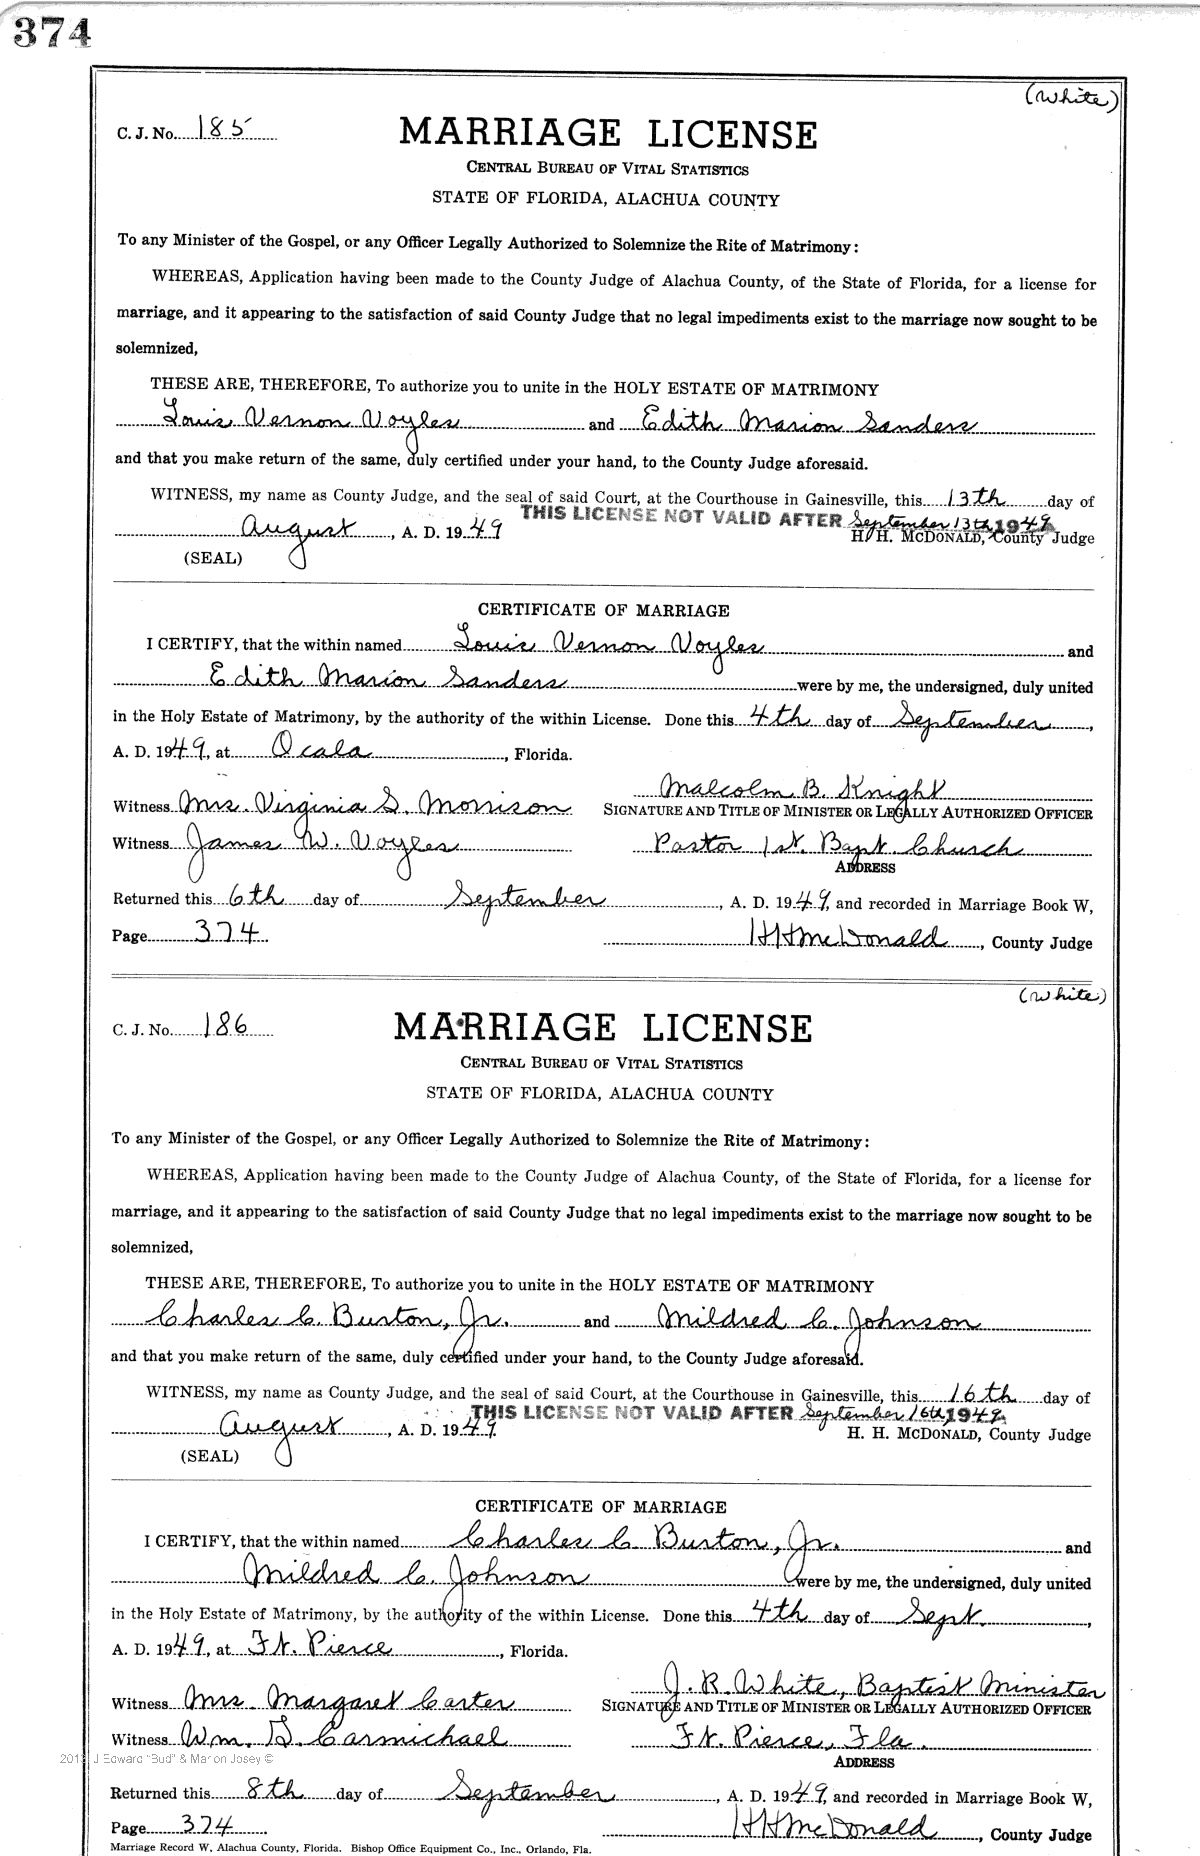 374
(White)
C. J. No. 185
MARRIAGE LICENSE
CENTRAL BUREAU OF VITAL STATISTICS
STATE OF FLORIDA, ALACHUA COUNTY
To any Minister of the Gospel, or any Officer Legally Authorized to Solemnize the Rite of Matrimony:
WHEREAS, Application having been made to the County Judge of Alachua County, of the State of Florida, for a license for
marriage, and it appearing to the satisfaction of said County Judge that no legal impediments exist to the marriage now sought to be
solemnized,
THESE ARE, THEREFORE, To authorize you to unite in the HOLY ESTATE OF MATRIMONY
Louis Vernon Voyles and Edith Marion Sanders
and that you make return of the same, duly certified under your hand, to the County Judge aforesaid.
WITNESS, my name as County Judge, and the seal of said Court, at the Courthouse in Gainesville, this 13th day of
THIS LICENSE NOT VALID AFTER September 13th, 1949
August, A. D. 1949 H. H. MCDONALD, County Judge
(SEAL)
CERTIFICATE OF MARRIAGE
I CERTIFY, that the within named Louis Vernon Voyles and
Edith Marion Sanders were by me, the undersigned, duly united
in the Holy Estate of Matrimony, by the authority of the within License. Done this 4th day of September,
A. D. 1949, at Ocala, Florida.
Malcolm B. Knight
Witness Mrs. Virginia S. Morrison SIGNATURE AND TITLE OF MINISTER OR LEGALLY AUTHORIZED OFFICER
Witness James W. Voyles Pastor 1st. Bapt. Church
ADDRESS
Returned this 6th day of September, A. D. 1949, and recorded in Marriage Book W,
Page 374 HHMcDonald, County Judge
(White)
C. J. No. 186
MARRIAGE LICENSE
CENTRAL BUREAU OF VITAL STATISTICS
STATE OF FLORIDA, ALACHUA COUNTY
To any Minister of the Gospel, or any Officer Legally Authorized to Solemnize the Rite of Matrimony:
WHEREAS, Application having been made to the County Judge of Alachua County, of the State of Florida, for a license for
marriage, and it appearing to the satisfaction of said County Judge that no legal impediments exist to the marriage now sought to be
solemnized,
THESE ARE, THEREFORE, To authorize you to unite in the HOLY ESTATE OF MATRIMONY
Charles C. Burton, Jr. and Mildred C. Johnson
and that you make return of the same, duly certified under your hand, to the County Judge aforesaid.
WITNESS, my name as County Judge, and the seal of said Court, at the Courthouse in Gainesville, this 16th day of
THIS LICENSE NOT VALID AFTER September 16th, 1949
August, A. D. 1949 H. H. MCDONALD, County Judge
(SEAL)
CERTIFICATE OF MARRIAGE
I CERTIFY, that the within named Charles C. Burton, Jr. and
Mildred C. Johnson were by me, the undersigned, duly united
in the Holy Estate of Matrimony, by the authority of the within License. Done this 4th day of Sept.,
A. D. 1949, at Ft. Pierce, Florida.
J. R. White, Baptist Minister
Witness Mrs. Margaret Carter SIGNATURE AND TITLE OF MINISTER OR LEGALLY AUTHORIZED OFFICER
Witness Wm. G. Carmichael Ft. Pierce, Fla.
J Edward "Bud" & Marion Josey ©
ADDRESS
Returned this 8th day of September, A. D. 1949, and recorded in Marriage Book W,
Page 374 HHMcDonald, County Judge
Marriage Record W, Alachua County, Florida. Bishop Office Equipment Co., Inc., Orlando, Fla.